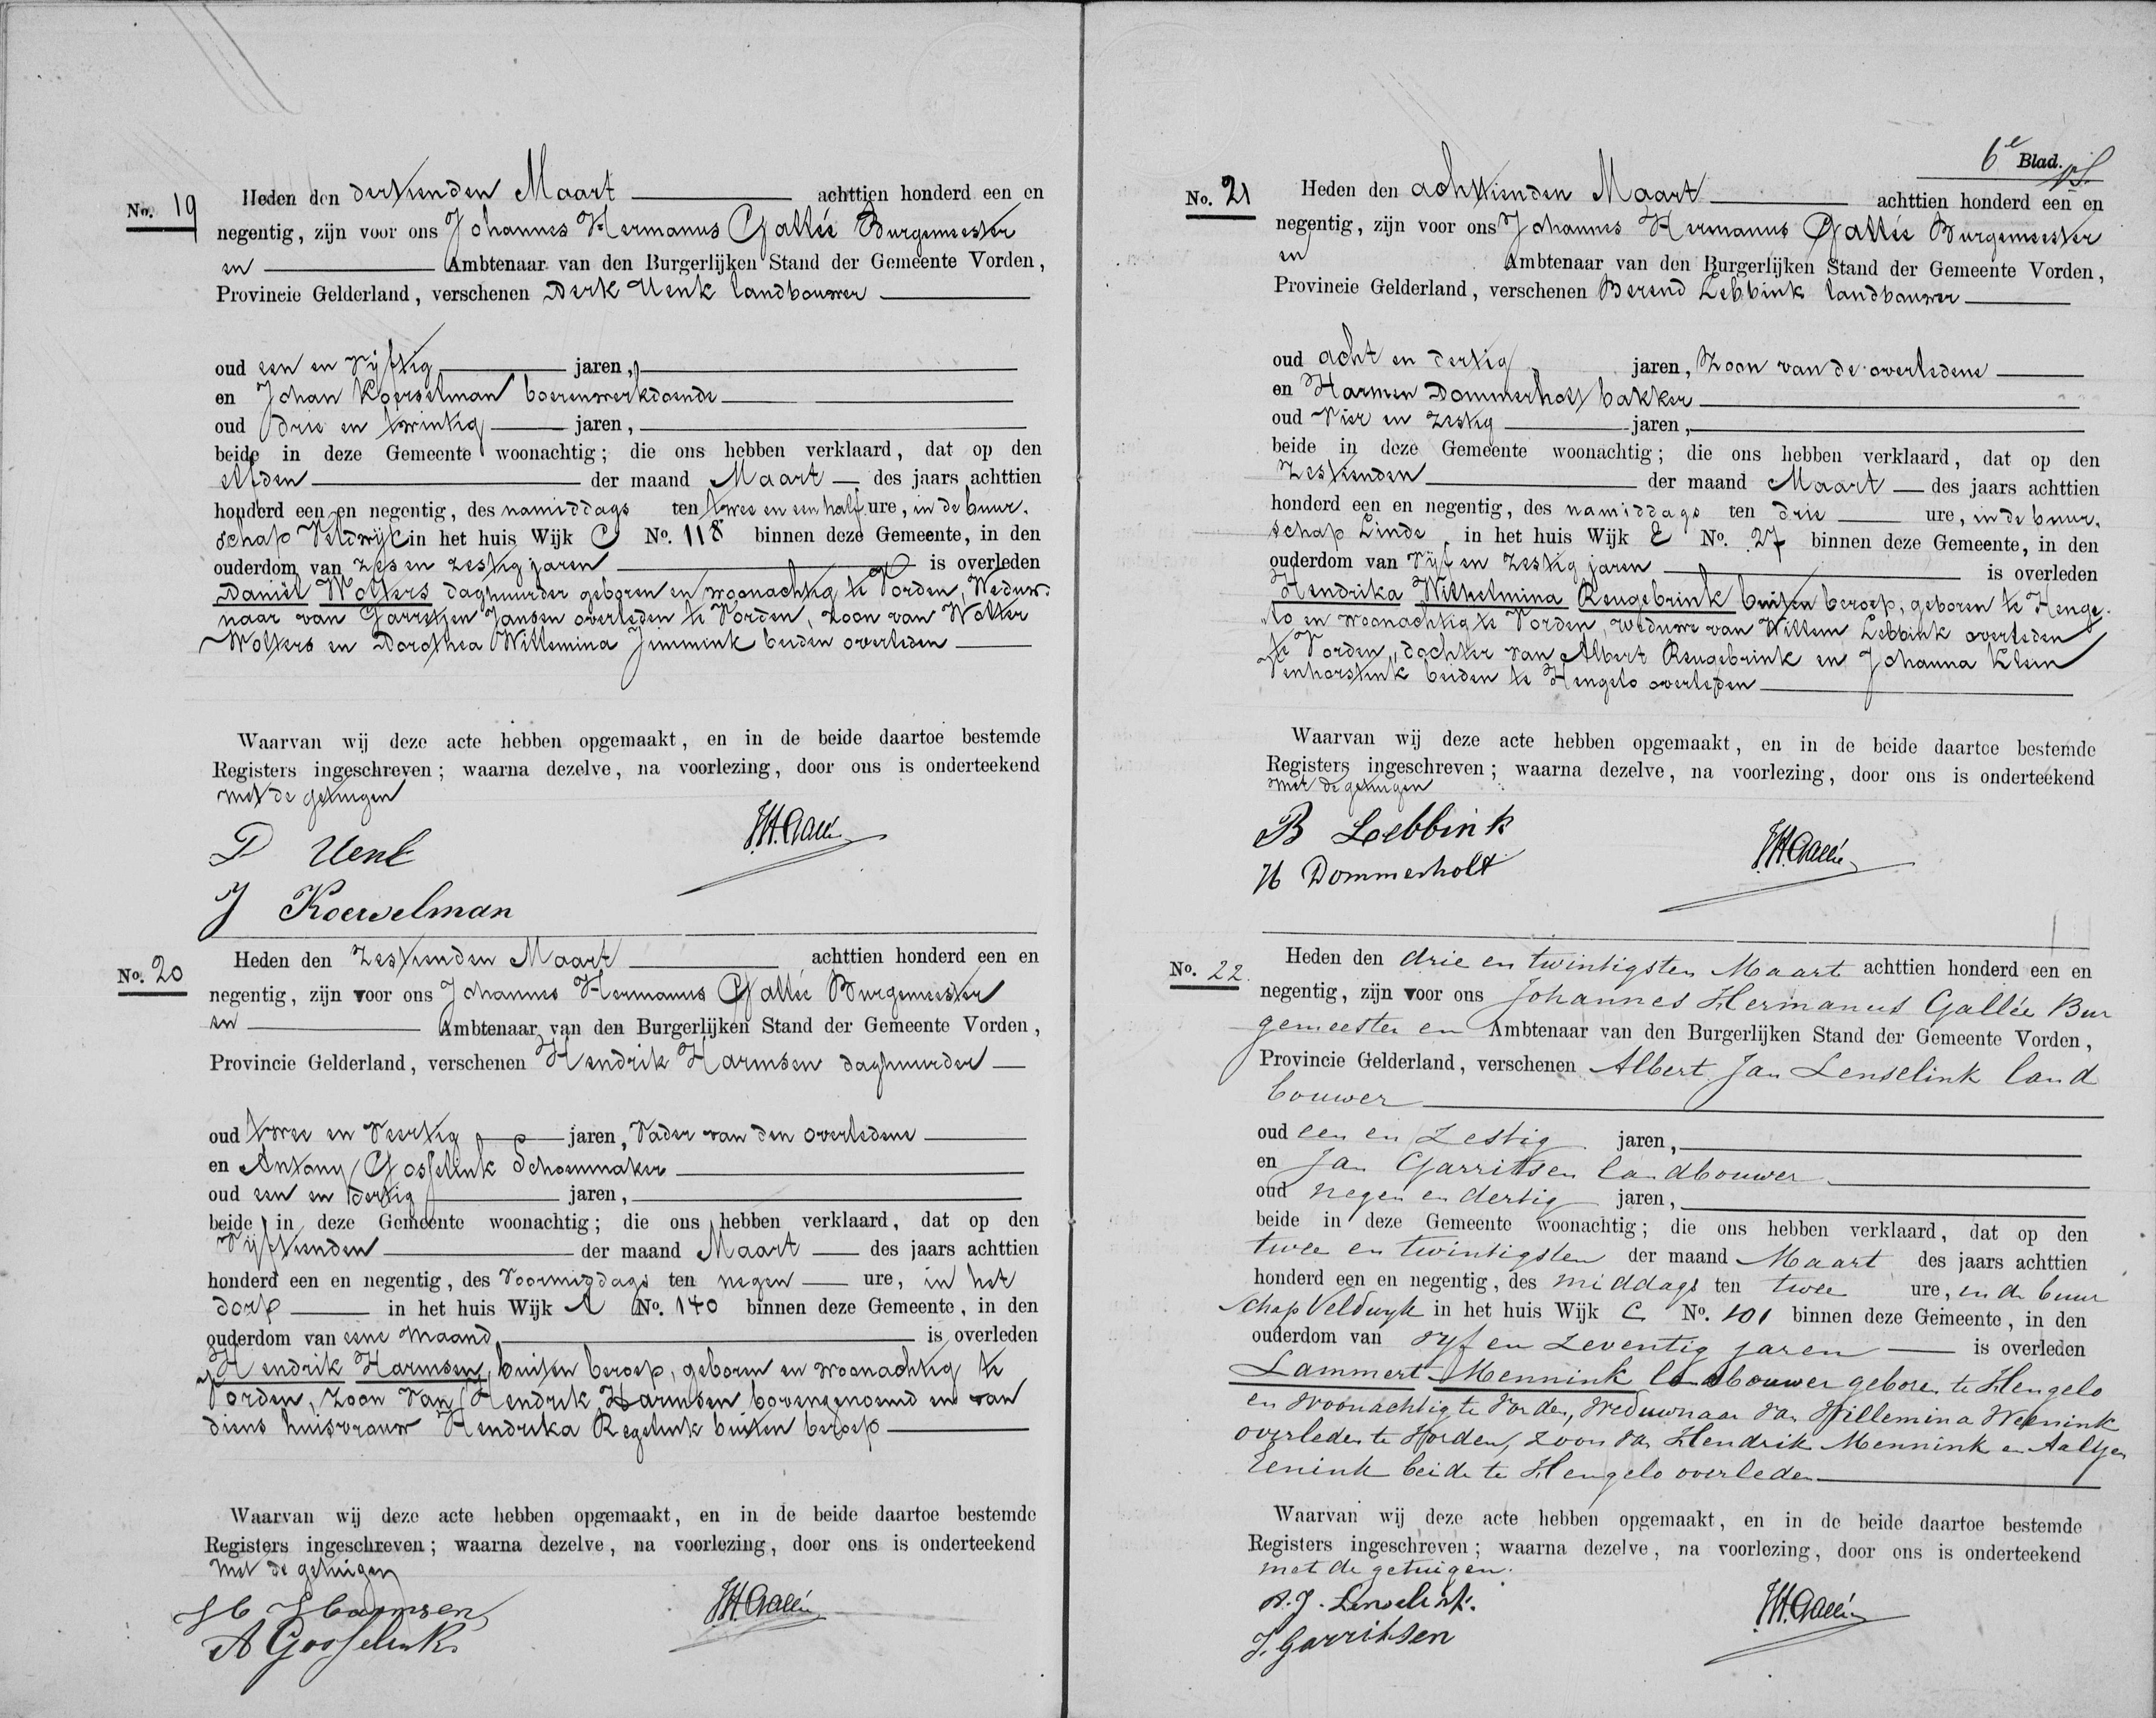 No. 19
Heden den dertienden Maart achttien honderd een en
negentig, zijn voor ons Johannes Hermanus Gallée Burgemeester
en Ambtenaar van den Burgerlijken Stand der Gemeente Vorden,
Provincie Gelderland, verschenen Derk Uenk landbouwer
oud een en vijftig jaren,
en Johan Koerselman boerenwerkdoende
oud drie en twintig jaren,
beide in deze Gemeente woonachtig; die ons hebben verklaard, dat op den
elfden der maand Maart des jaars achttien
honderd een en negentig, des namiddags ten twee en een half ure, in de buur-
schap Veldwijk in het huis Wijk C No. 118 binnen deze Gemeente, in den
ouderdom van zes en zestig jaren is overleden
Daniël Wolters daghuurder geboren en woonachtig te Vorden, Weduw-
naar van Garritjen Jansen overleden te Vorden, zoon van Wolter
Wolters en Dorothea Willemina Jimmink beiden overleden
Waarvan wij deze acte hebben opgemaakt, en in de beide daartoe bestemde
Registers ingeschreven; waarna dezelve, na voorlezing, door ons is onderteekend
met de getuigen
D Uenk
JH.Gallée
J Koerselman
No. 20
Heden den zestienden Maart achttien honderd een en
negentig, zijn voor ons Johannes Hermanus Gallée Burgemeester
en Ambtenaar van den Burgerlijken Stand der Gemeente Vorden,
Provincie Gelderland, verschenen Hendrik Harmsen daghuurder
oud twee en veertig jaren, Vader van den overledene
en Antony Gosselink Schoenmaker
oud een en dertig jaren,
beide in deze Gemeente woonachtig; die ons hebben verklaard, dat op den
vijftienden der maand Maart des jaars achttien
honderd een en negentig, des voormiddags ten negen ure, in het
dorp in het huis Wijk A No. 140 binnen deze Gemeente, in den
ouderdom van eene maand is overleden
Hendrik Harmsen, buiten beroep, geboren en woonachtig te
Vorden, zoon van Hendrik Harmsen bovengenoemd en van
diens huisvrouw Hendrika Regelink buiten beroep
Waarvan wij deze acte hebben opgemaakt, en in de beide daartoe bestemde
Registers ingeschreven; waarna dezelve, na voorlezing, door ons is onderteekend
met de getuigen
H Harmsen
JH.Gallée
A Gosselink
6e Blad.
No. 21
Heden den achttienden Maart achttien honderd een en
negentig, zijn voor ons Johannes Hermanus Gallée Burgemeester
en Ambtenaar van den Burgerlijken Stand der Gemeente Vorden,
Provincie Gelderland, verschenen Berend Lebbink landbouwer
oud acht en dertig jaren, zoon van de overledene
en Harmen Dommerholt bakker
oud vier en zestig jaren,
beide in deze Gemeente woonachtig; die ons hebben verklaard, dat op den
zestienden der maand Maart des jaars achttien
honderd een en negentig, des namiddags ten drie ure, in de buur-
schap Linde in het huis Wijk E No. 27 binnen deze Gemeente, in den
ouderdom van vijf en zestig jaren is overleden
Hendrika Wilhelmina Reugebrink buiten beroep, geboren te Henge-
lo en woonachtig te Vorden, weduwe van Willem Lebbink overleden
te Vorden, dochter van Albert Reugebrink en Johanna Klein
Penhorstink beiden te Hengelo overleden
Waarvan wij deze acte hebben opgemaakt, en in de beide daartoe bestemde
Registers ingeschreven; waarna dezelve, na voorlezing, door ons is onderteekend
met de getuigen
B Lebbink
JH.Gallée
H Dommerholt
No. 22.
Heden den drie en twintigsten Maart achttien honderd een en
negentig, zijn voor ons Johannes Hermanus Gallée Bur
gemeester en Ambtenaar van den Burgerlijken Stand der Gemeente Vorden,
Provincie Gelderland, verschenen Albert Jan Lenselink land
bouwer
oud een en zestig jaren,
en Jan Garritsen landbouwer
oud negen en dertig jaren,
beide in deze Gemeente woonachtig; die ons hebben verklaard, dat op den
twee en twintigsten der maand Maart des jaars achttien
honderd een en negentig, des middags ten twee ure, in de buur
schap Veldwyk in het huis Wijk C No. 101 binnen deze Gemeente, in den
ouderdom van vyf en zeventig jaren is overleden
Lammert Mennink landbouwer geboren te Hengelo
en woonachtig te Vorden, weduwnaar van Willemina Weenink
overleden te Vorden, zoon van Hendrik Mennink en Aaltjen
Eenink beide te Hengelo overleden
Waarvan wij deze acte hebben opgemaakt, en in de beide daartoe bestemde
Registers ingeschreven; waarna dezelve, na voorlezing, door ons is onderteekend
met de getuigen.
A.J. Lenselink.
JH.Gallée
J. Garritsen